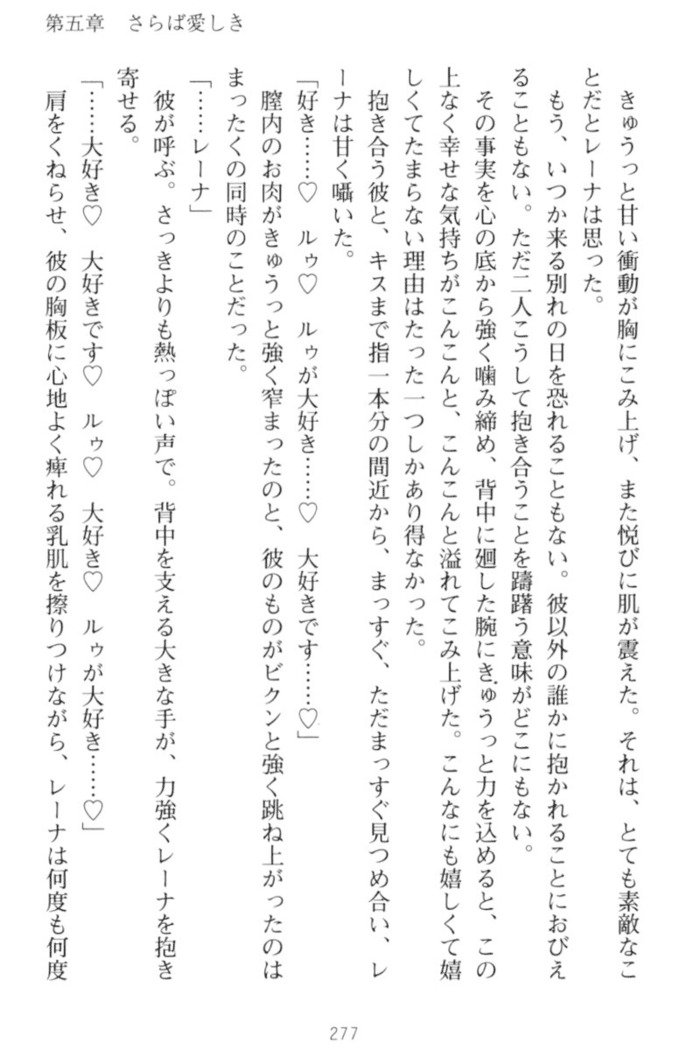 第五章　さらば愛しき
　きゅうっと甘い衝動が胸にこみ上げ、また悦びに肌が震えた。それは、とても素敵なこ
とだとレーナは思った。
　もう、いつか来る別れの日を恐れることもない。彼以外の誰かに抱かれることにおびえ
ることもない。ただ二人こうして抱き合うことを躊躇う意味がどこにもない。
　その事実を心の底から強く噛み締め、背中に廻した腕にきゅうっと力を込めると、この
上なく幸せな気持ちがこんこんと、こんこんと溢れてこみ上げた。こんなにも嬉しくて嬉
しくてたまらない理由はたった一つしかあり得なかった。
　抱き合う彼と、キスまで指一本分の間近から、まっすぐ、ただまっすぐ見つめ合い、レ
ーナは甘く囁いた。
「好き……♡　ルゥ♡　ルゥが大好き……♡　大好きです……♡」
　膣内のお肉がきゅうっと強く窄まったのと、彼のものがビクンと強く跳ね上がったのは
まったくの同時のことだった。
「……レーナ」
　彼が呼ぶ。さっきよりも熱っぽい声で。背中を支える大きな手が、力強くレーナを抱き
寄せる。
「……大好き♡　大好きです♡　ルゥ♡　大好き♡　ルゥが大好き……♡」
　肩をくねらせ、彼の胸板に心地よく痺れる乳肌を擦りつけながら、レーナは何度も何度
277